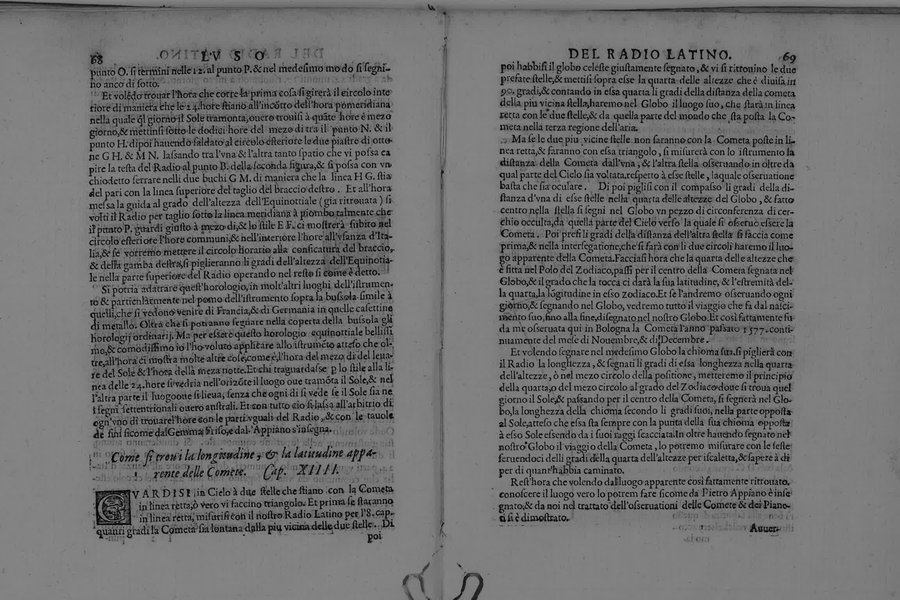 68 L'V S O
punto O. si termini nelle 12. al punto P. & nel medesimo modo si segni-
no anco di sotto.
Et volēdo trouar l'hora che corre la prima cosa si girerà il circolo inte
riore di maniera che le 24. hore stiano all'incōtro dell'hora pomeridiana
nella quale q̄l giorno il Sole tramonta, ouero trouisi à quāte hore è mezo
giorno, & mettinsi sotto le dodici hore del mezo dì tra il punto N. & il
punto H. dipoi hauendo saldato al circolo esteriore le due piastre di otto-
ne G H. & M N. lassando tra l'vna & l'altra tanto spatio che vi possa ca
pire la testa del Radio al punto B. della seconda figura, & si possa con vn
chiodetto serrare nelli due buchi G M. di maniera che la linea H G. stia
del pari con la linea superiore del taglio del braccio destro. Et all'hora
messa la guida al grado dell'altezza dell'Equinottiale (gia ritrouata) si
volti il Radio per taglio sotto la linea meridiana à piombo talmente che
il punto P. guardi giusto à mezo dì, & lo stile E F. ci mostrerà subito nel
circolo esteriore l'hore communi, & nell'interiore l'hore all'vsanza d'Ita-
lia, & se vorremo mettere il circolo horario alla conficatura del braccio,
& della gamba destra, si piglieranno li gradi dell'altezza dell'Equinotia-
le nella parte superiore del Radio operando nel resto si come è detto.
Si potria adattare quest'horologio, in molt'altri luoghi dell'istrumen-
to & particularmente nel pomo dell'istrumento sopra la bussola simile à
quelli, che si vedono venire di Francia, & di Germania in quelle cassettine
di metallo. Oltra che si potranno segnare nella coperta della bussola gli
horologij ordinarij. Ma per essere questo horologio equinottiale bellissi
mo, & comodissimo io l'ho voluto applicare allo istrumēto atteso che ol-
tre, all'hora ci mostra molte altre cose, come è, l'hora del mezo dì del leua-
re del Sole & l'hora della meza notte. Et chi traguardasse p lo stile alla li
nea delle 24. hore si vedria nell'orizōte il luogo oue tramōta il Sole, & nel
l'altra parte il luogo oue si lieua, senza che ogni dì si vede se il Sole sia ne
i segni settentrionali ouero australi. Et con tutto ciò si lassa all'arbitrio di
ogn'vno di trouare l'hore con le parti vguali del Radio, & con le tauole
de sini sicome dal Gemma Frisio, e dal' Appiano s'insegna.
Come si troui la longitudine, & la latitudine appa-
rente delle Comete. Cap. XIIII.
GVARDISI in Cielo à due stelle che stiano con la Cometa
in linea retta, ò vero vi faccino triangolo. Et prima se staranno
in linea retta, misurisi con il nostro Radio Latino per l'8. cap.
quanti gradi la Cometa sia lontana dalla piu vicina delle due stelle. Di
poi
DEL RADIO LATINO. 69
poi habbisi il globo celeste giustamente segnato, & vi si ritrouino le due
prefate stelle, & mettisi sopra esse la quarta delle altezze che è diuisa in
90. gradi, & contando in essa quarta li gradi della distanza della cometa
della piu vicina stella, haremo nel Globo il luogo suo, che starà in linea
retta con le due stelle, & da quella parte del mondo che sta posta la Co-
meta nella terza regione dell'aria.
Ma se le due piu vicine stelle non faranno con la Cometa poste in li-
nea retta, & faranno con essa triangolo, si misurerà con lo istrumento la
distanza della Cometa dall'vna, & l'altra stella osseruando in oltre da
qual parte del Cielo sia voltata, respetto à esse stelle, la quale osseruatione
basta che sia oculare. Di poi piglisi con il compasso li gradi della di-
stanza d'vna di esse stelle nella quarta delle altezze del Globo, & fatto
centro nella stella si segni nel Globo vn pezzo di circonferenza di cer-
chio occulta, da quella parte del Cielo verso la quale si osseruò essere la
Cometa. Poi presi li gradi della distanza dell'altra stella si faccia come
prima, & nella intersegatione, che si farà con li due circoli haremo il luo-
go apparente della Cometa. Facciasi hora che la quarta delle altezze che
è fitta nel Polo del Zodiaco, passi per il centro della Cometa segnata nel
Globo, & il grado che la tocca ci darà la sua latitudine, & l'estremità del-
la quarta, la lōgitudine in esso Zodiaco. Et se l'andremo osseruando ogni
giorno, & segnando nel Globo, vedremo tutto il viaggio che fa dal nasci-
mento suo, fino alla fine, disegnato nel nostro Globo. Et così fattamente fu
da me osseruata qui in Bologna la Cometa l'anno passato 1577. conti-
nuamente del mese di Nouembre, & di Decembre.
Et volendo segnare nel medesimo Globo la chioma sua, si piglierà con
il Radio la longhezza, & segnati li gradi di essa longhezza nella quarta
dell'altezze, ò nel mezo circolo della positione, metteremo il principio
della quarta, o del mezo circolo al grado del Zodiaco doue si troua quel
giorno il Sole, & passando per il centro della Cometa, si segnerà nel Glo-
bo, la longhezza della chioma secondo li gradi suoi, nella parte opposta
al Sole, atteso che essa sta sempre con la punta della sua chioma opposta
à esso Sole essendo da i suoi raggi scacciata. In oltre hauendo segnato nel
nostro Globo il viaggio della Cometa, lo potremo misurare con le seste
seruendoci delli gradi della quarta dell'altezze per iscaletta, & sapere à dì
per dì quant'habbia caminato.
Rest'hora che volendo dal luogo apparente così fattamente ritrouato,
conoscere il luogo vero lo potrem fare sicome da Pietro Appiano è inse
gnato, & da noi nel trattato dell'osseruationi delle Comete & dei Piane-
ti si è dimostrato.
Auuer-